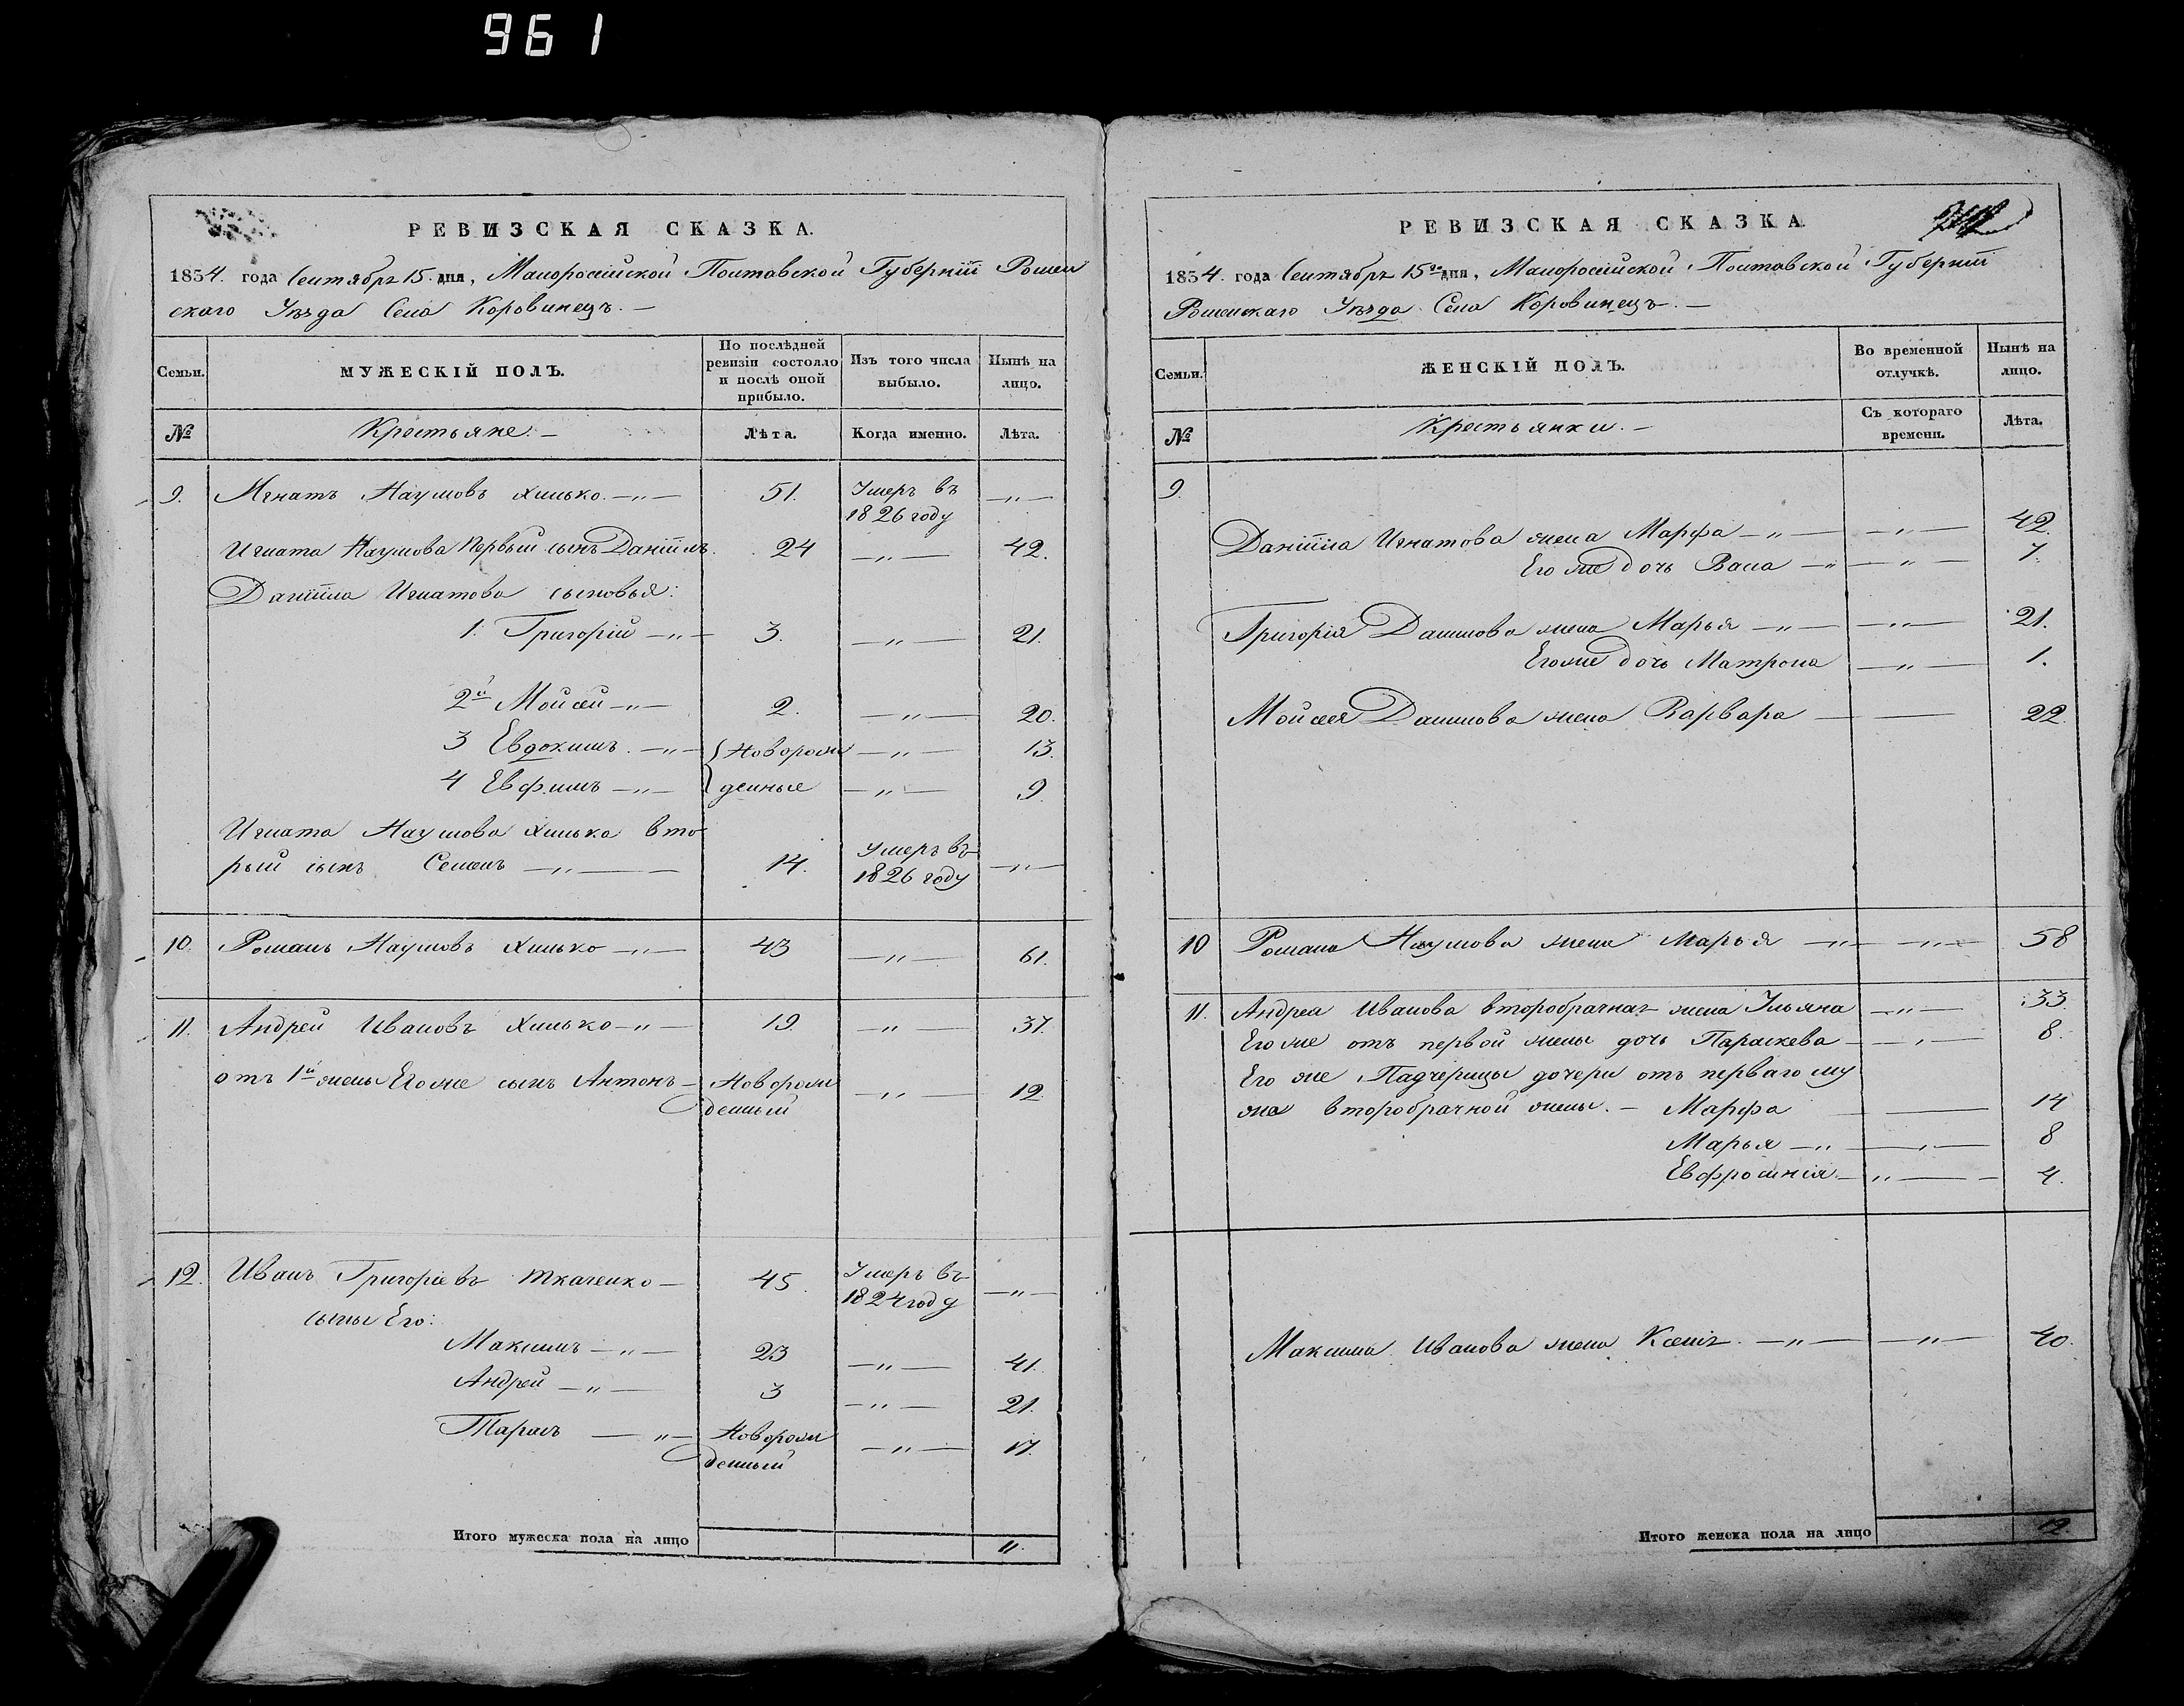 961
РЕВИЗСКАЯ СКАЗКА.
1834. года Сентября 15. дня, Малоросійской Полтавской Губерніи Ромен
скаго Уѣзда Села Коровинецъ. —
Семьи.
МУЖЕСКІЙ ПОЛЪ.
По послѣдней ревизіи состояло и послѣ оной прибыло.
Изъ того числа выбыло.
Нынѣ на лицо.
№ Крестьяне. — Лѣта. Когда именно. Лѣта.
9. Игнатъ Наумовъ Хилько. —„— 51. Умеръ въ —„—
1826 году
Игната Наумова Первый сынъ Даніилъ. 24 —„— 42.
Даніила Игнатова сыновья:
1. Григорій —„— 3. —„— 21.
2й Мойсей —„— 2. —„— 20.
3 Евдокимъ. —„— Новорож —„— 13.
4 Евфимъ —„— денные —„— 9.
Игната Наумова Хилька вто
рый сынъ Семенъ —„— 14. Умеръ въ 1826 году —„—
10. Романъ Наумовъ Хилько —„— 43 —„— 61.
11. Андрей Ивановъ Хилько —„— 19. —„— 37.
отъ 1й жены Его же сынъ Антонъ — Новорож —„— 12.
денный
12. Иванъ Григоріевъ Ткаченко — 45. Умеръ въ —„—
1824 году
сыны Его:
Максимъ —„— 23 —„— 41.
Андрей —„— 3 —„— 21.
Тарасъ —„— Новорож —„— 17.
денный
Итого мужеска пола на лицо 11.
РЕВИЗСКАЯ СКАЗКА
1834. года Сентября 15го дня, Малоросійской Полтавской Губерніи
Роменскаго Уѣзда Села Коровинецъ. —
Семьи.
ЖЕНСКІЙ ПОЛЪ.
Во временной отлучкѣ.
Нынѣ на лицо.
№ Крестьянки. — Съ котораго времени. Лѣта.
9.
Даніила Игнатова жена Марфа —„— —„— 42.
Его же дочь Васа —„— —„— 7.
Григорія Данилова жена Марья —„— —„— 21.
Его же дочь Матрона —„— 1.
Мойсея Данилова жена Варвара — — 22.
10 Романа Наумова жена Марья —„— —„— 58
11. Андрея Иванова второбрачная жена Ульяна —„— 33.
Его же отъ первой жены дочь Параскева —„— 8.
Его же Падчерицы дочери отъ перваго му
жа второбрачной жены. — Марфа — 14
Марья —„— —„— 8
Евфросинія — —„— 4.
Максима Иванова жена Ксенія. —„— —„— 40.
Итого женска пола на лицо 12